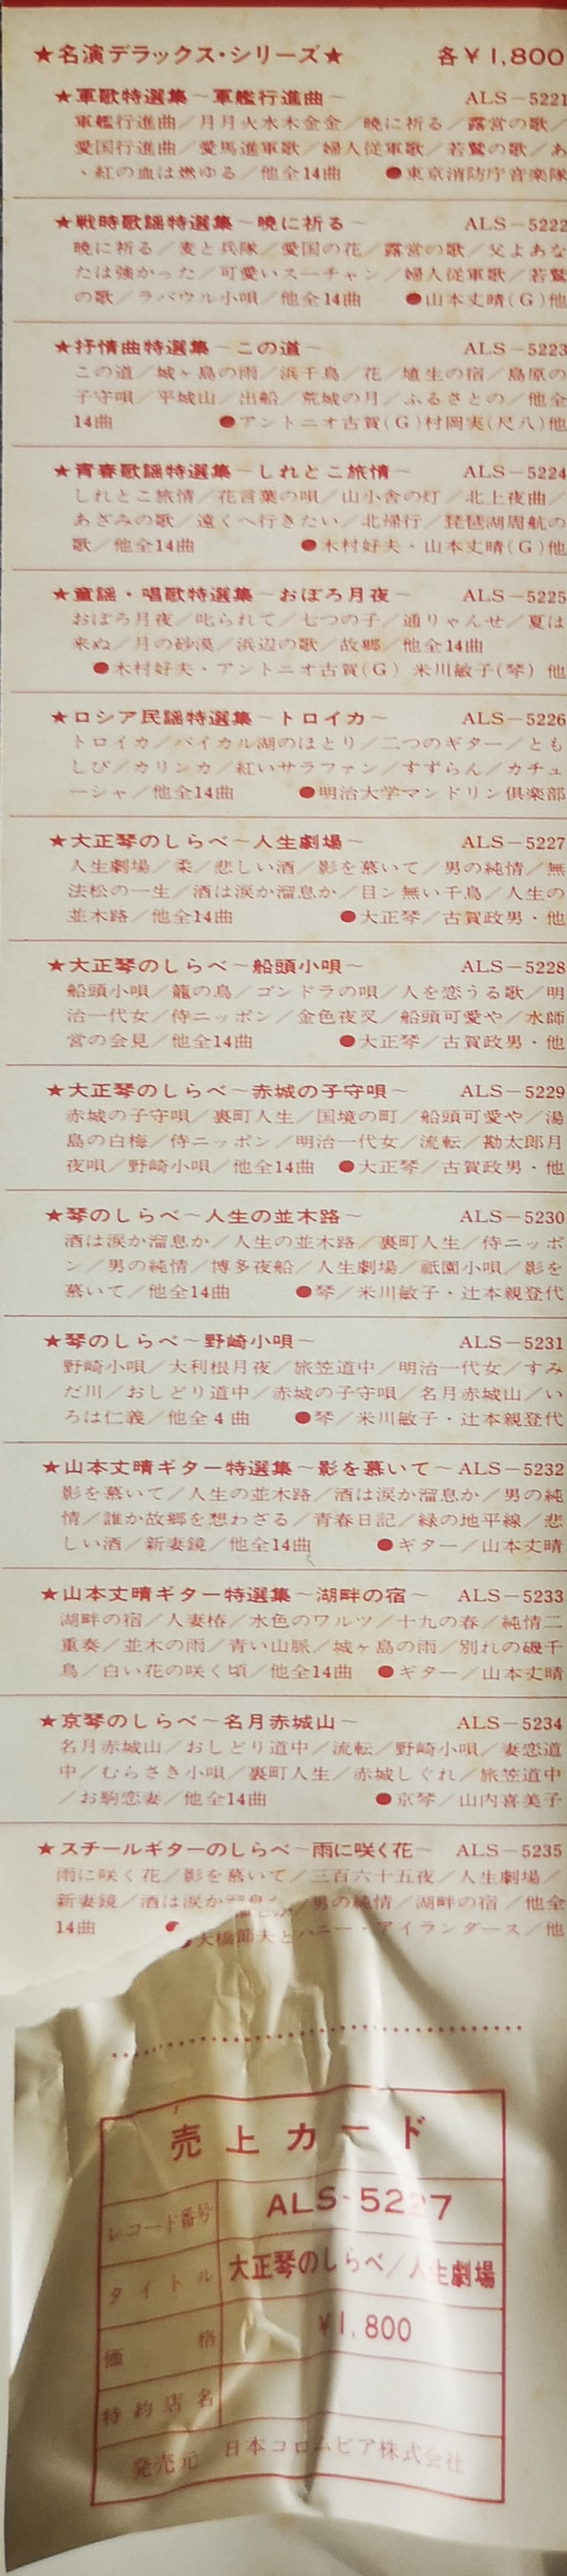 ★名演デラックス・シリーズ★ 各¥1,800
★軍歌特選集〜軍艦行進曲〜 ALS-5221
軍艦行進曲／月月火水木金金／暁に祈る／露営の歌／
愛国行進曲／愛馬進軍歌／婦人従軍歌／若鷲の歌／あ
、紅の血は燃ゆる／他全14曲 ●東京消防庁音楽隊
★戦時歌謡特選集〜暁に祈る〜 ALS-5222
暁に祈る／麦と兵隊／愛国の花／露営の歌／父よあな
たは強かった／可愛いスーチャン／婦人従軍歌／若鷲
の歌／ラバウル小唄／他全14曲 ●山本丈晴(G)他
★抒情曲特選集〜この道〜 ALS-5223
この道／城ヶ島の雨／浜千鳥／花／埴生の宿／島原の
子守唄／平城山／出船／荒城の月／ふるさとの／他全
14曲 ●アントニオ古賀(G)村岡実(尺八)他
★青春歌謡特選集〜しれとこ旅情〜 ALS-5224
しれとこ旅情／花言葉の唄／山小舎の灯／北上夜曲／
あざみの歌／遠くへ行きたい／北帰行／琵琶湖周航の
歌／他全14曲 ●木村好夫・山本丈晴(G)他
★童謡・唱歌特選集〜おぼろ月夜〜 ALS-5225
おぼろ月夜／叱られて／七つの子／通りゃんせ／夏は
来ぬ／月の砂漠／浜辺の歌／故郷／他全14曲
●木村好夫・アントニオ古賀(G) 米川敏子(琴) 他
★ロシア民謡特選集〜トロイカ〜 ALS-5226
トロイカ／バイカル湖のほとり／二つのギター／とも
しび／カリンカ／紅いサラファン／すずらん／カチュ
ーシャ／他全14曲 ●明治大学マンドリン倶楽部
★大正琴のしらべ〜人生劇場〜 ALS-5227
人生劇場／柔／悲しい酒／影を慕いて／男の純情／無
法松の一生／酒は涙か溜息か／目ン無い千鳥／人生の
並木路／他全14曲 ●大正琴／古賀政男・他
★大正琴のしらべ〜船頭小唄〜 ALS-5228
船頭小唄／籠の鳥／ゴンドラの唄／人を恋うる歌／明
治一代女／侍ニッポン／金色夜叉／船頭可愛や／水師
営の会見／他全14曲 ●大正琴／古賀政男・他
★大正琴のしらべ〜赤城の子守唄〜 ALS-5229
赤城の子守唄／裏町人生／国境の町／船頭可愛や／湯
島の白梅／侍ニッポン／明治一代女／流転／勘太郎月
夜唄／野崎小唄／他全14曲 ●大正琴／古賀政男・他
★琴のしらべ〜人生の並木路〜 ALS-5230
酒は涙か溜息か／人生の並木路／裏町人生／侍ニッポ
ン／男の純情／博多夜船／人生劇場／祇園小唄／影を
慕いて／他全14曲 ●琴／米川敏子・辻本親登代
★琴のしらべ〜野崎小唄〜 ALS-5231
野崎小唄／大利根月夜／旅笠道中／明治一代女／すみ
だ川／おしどり道中／赤城の子守唄／名月赤城山／い
ろは仁義／他全4曲 ●琴／米川敏子・辻本親登代
★山本丈晴ギター特選集〜影を慕いて〜 ALS-5232
影を慕いて／人生の並木路／酒は涙か溜息か／男の純
情／誰か故郷を想わざる／青春日記／緑の地平線／悲
しい酒／新妻鏡／他全14曲 ●ギター／山本丈晴
★山本丈晴ギター特選集〜湖畔の宿〜 ALS-5233
湖畔の宿／人妻椿／水色のワルツ／十九の春／純情二
重奏／並木の雨／青い山脈／城ヶ島の雨／別れの磯千
鳥／白い花の咲く頃／他全14曲 ●ギター／山本丈晴
★京琴のしらべ〜名月赤城山〜 ALS-5234
名月赤城山／おしどり道中／流転／野崎小唄／妻恋道
中／むらさき小唄／裏町人生／赤城しぐれ／旅笠道中
／お駒恋妻／他全14曲 ●京琴／山内喜美子
★スチールギターのしらべ〜雨に咲く花〜 ALS-5235
雨に咲く花／影を慕いて／三百六十五夜／人生劇場／
新妻鏡／酒は涙か溜息か／男の純情／湖畔の宿／他全
14曲 ●大橋節夫とハニー・アイランダース／他
売上カード
レコード番号 ALS-5227
タイトル 大正琴のしらべ／人生劇場
価格 ¥1,800
特約店名
発売元 日本コロムビア株式会社